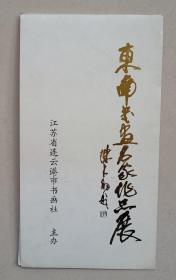 東南書画名家作品展
江苏省连云港市书画社 主办